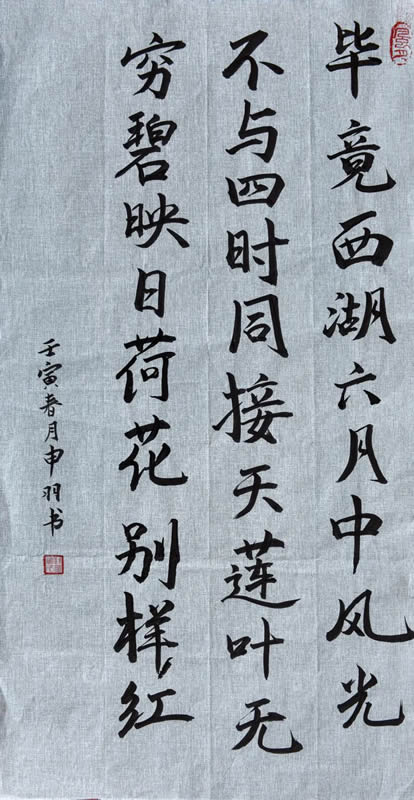 毕竟西湖六月中风光
不与四时同接天莲叶无
穷碧映日荷花别样红
壬寅春月申羽书